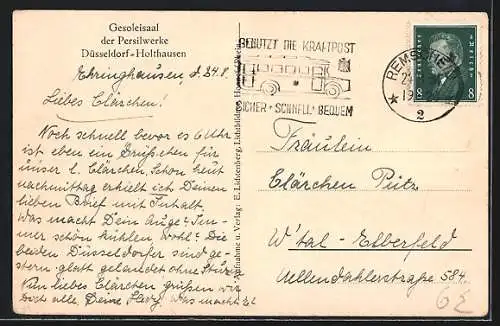 Gesoleisaal
der Persilwerke
Düsseldorf-Holthausen
Ehringhausen, d. 24.8.
Liebes Clärchen!
Noch schnell bevor es 6 Uhr
ist eben ein Grüßchen für
unser l. Clärchen. Schon heut
nachmittag erhielt ich Deinen
lieben Brief mit Inhalt.
Was macht Dein Auge? Im-
mer schön kühlen, wohl? Die
beiden Düsseldorfer sind ge-
stern glatt gelandet ohne
Nun liebes Clärchen grüßen wir
Dich alle, Deine Was macht
Aufnahme u. Verlag: E. Lichtenberg, Lichtbildner,
BENUTZT DIE KRAFTPOST
SICHER · SCHNELL · BEQUEM
REMSCHEID
2
8 8
Fräulein
Clärchen Pütz
W'tal-Elberfeld
Uellendahlerstraße 584
62